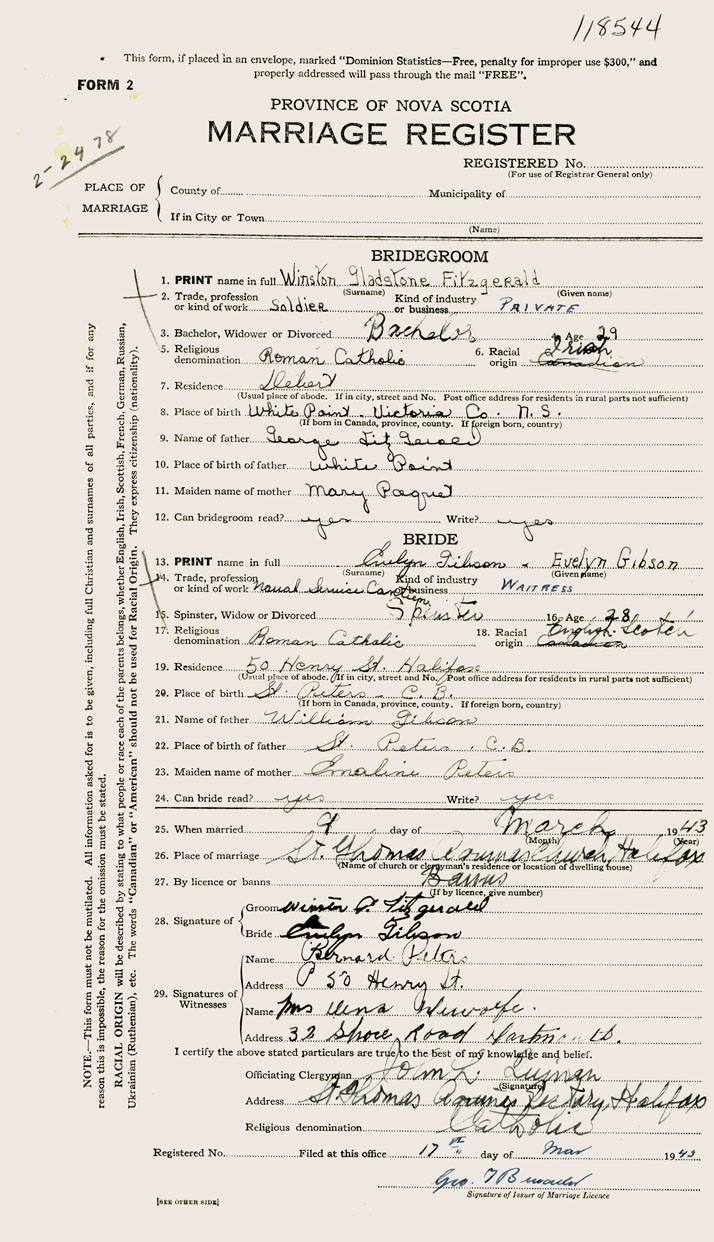 118544
This form, if placed in an envelope, marked “Dominion Statistics—Free, penalty for improper use $300,” and
properly addressed will pass through the mail “FREE”.
FORM 2
PROVINCE OF NOVA SCOTIA
MARRIAGE REGISTER
2-24 78
REGISTERED No.
(For use of Registrar General only)
PLACE OF MARRIAGE
County of Municipality of
If in City or Town
(Name)
BRIDEGROOM
1. PRINT name in full Winston Gladstone Fitzgerald
(Surname) (Given name)
2. Trade, profession or kind of work Soldier Kind of industry or business PRIVATE
3. Bachelor, Widower or Divorced Bachelor 4. Age 29
5. Religious denomination Roman Catholic 6. Racial origin Irish Canadian
7. Residence Debert
(Usual place of abode. If in city, street and No. Post office address for residents in rural parts not sufficient)
8. Place of birth White Point. Victoria Co. N. S.
(If born in Canada, province, county. If foreign born, country)
9. Name of father George Fitzgerald
10. Place of birth of father White Point
11. Maiden name of mother Mary Paquet
12. Can bridegroom read? yes Write? yes
BRIDE
13. PRINT name in full Evelyn Gibson - Evelyn Gibson
(Surname) (Given name)
14. Trade, profession or kind of work Naval Service Canteen Kind of industry or business WAITRESS
15. Spinster, Widow or Divorced Spinster 16. Age 28
17. Religious denomination Roman Catholic 18. Racial origin English-Scotch Canadian
19. Residence 50 Henry St. Halifax
(Usual place of abode. If in city, street and No. Post office address for residents in rural parts not sufficient)
20. Place of birth St. Peters - C. B.
(If born in Canada, province, county. If foreign born, country)
21. Name of father William Gibson
22. Place of birth of father St. Peters. C. B.
23. Maiden name of mother Emaline Peters
24. Can bride read? yes Write? yes
25. When married 9 day of March 1943
(Month) (Year)
26. Place of marriage St. Thomas Aquinas Church, Halifax
(Name of church or clergyman's residence or location of dwelling house)
27. By licence or banns Banns
(If by licence, give number)
28. Signature of
Groom Winston G. Fitzgerald
Bride Evelyn Gibson
29. Signatures of Witnesses
Name Bernard Peters
Address 50 Henry St.
Name Mrs
Address 32 Shore Road
I certify the above stated particulars are true to the best of my knowledge and belief.
Officiating Clergyman John L.
(Signature)
Address St Thomas Aquinas Rectory, Halifax
Religious denomination Catholic
Registered No. Filed at this office 17th day of Mar 1943
Geo.
Signature of Issuer of Marriage Licence
[SEE OTHER SIDE]
NOTE.—This form must not be mutilated. All information asked for is to be given, including full Christian and surnames of all parties, and if for any
reason this is impossible, the reason for the omission must be stated.
RACIAL ORIGIN will be described by stating to what people or race each of the parents belongs, whether English, Irish, Scottish, French, German, Russian,
Ukrainian (Ruthenian), etc. The words “Canadian” or “American” should not be used for Racial Origin. They express citizenship (nationality).